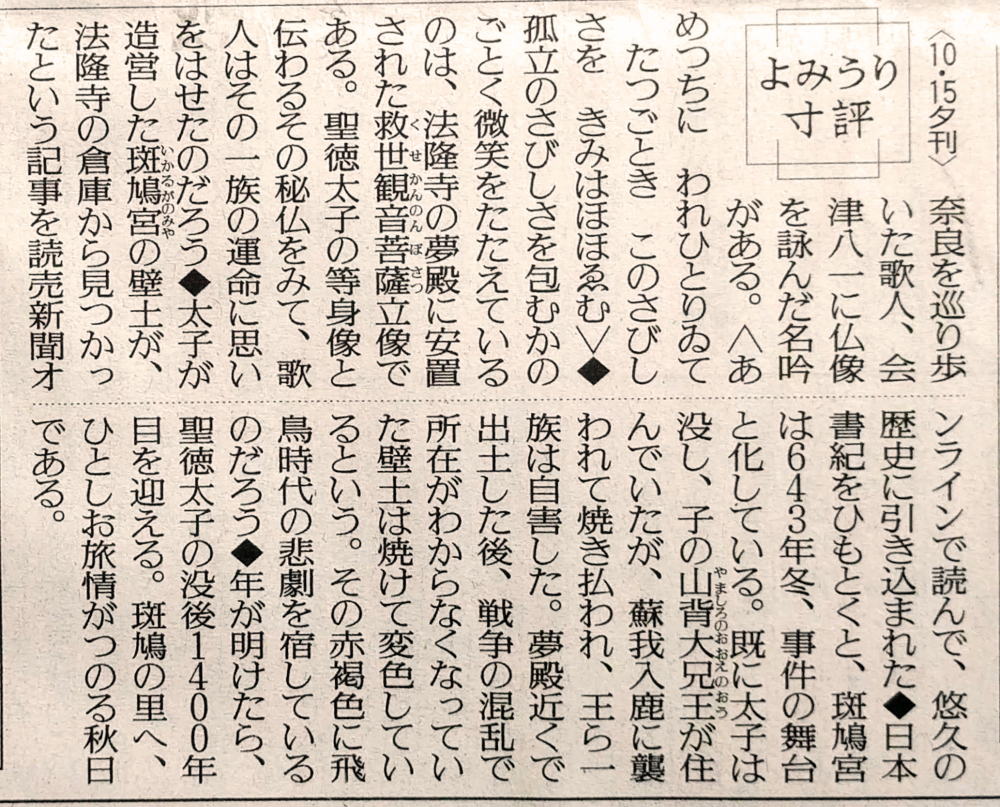 〈10・15夕刊〉
よみうり
寸評
奈良を巡り歩
いた歌人、会
津八一に仏像
を詠んだ名吟
がある。〈あ
めつちに　われひとりゐて
　たつごとき　このさびし
さを　きみはほほゑむ〉◆
孤立のさびしさを包むかの
ごとく微笑をたたえている
のは、法隆寺の夢殿に安置
された救世観音菩薩立像で
ある。聖徳太子の等身像と
伝わるその秘仏をみて、歌
人はその一族の運命に思い
をはせたのだろう◆太子が
造営した斑鳩宮の壁土が、
法隆寺の倉庫から見つかっ
たという記事を読売新聞オ
ンラインで読んで、悠久の
歴史に引き込まれた◆日本
書紀をひもとくと、斑鳩宮
は643年冬、事件の舞台
と化している。既に太子は
没し、子の山背大兄王が住
んでいたが、蘇我入鹿に襲
われて焼き払われ、王ら一
族は自害した。夢殿近くで
出土した後、戦争の混乱で
所在がわからなくなってい
た壁土は焼けて変色してい
るという。その赤褐色に飛
鳥時代の悲劇を宿している
のだろう◆年が明けたら、
聖徳太子の没後1400年
目を迎える。斑鳩の里へ、
ひとしお旅情がつのる秋日
である。
くせかんのんぼさつ
いかるがのみや
やましろのおおえのおう